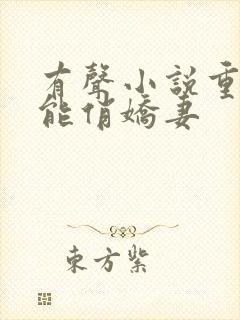 有聲小說重
能俏嬌妻
東方紫